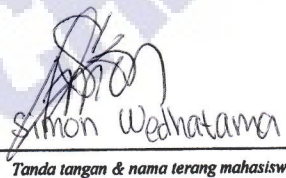 Simon Wedhatama
Tanda tangan & nama terang mahasisw